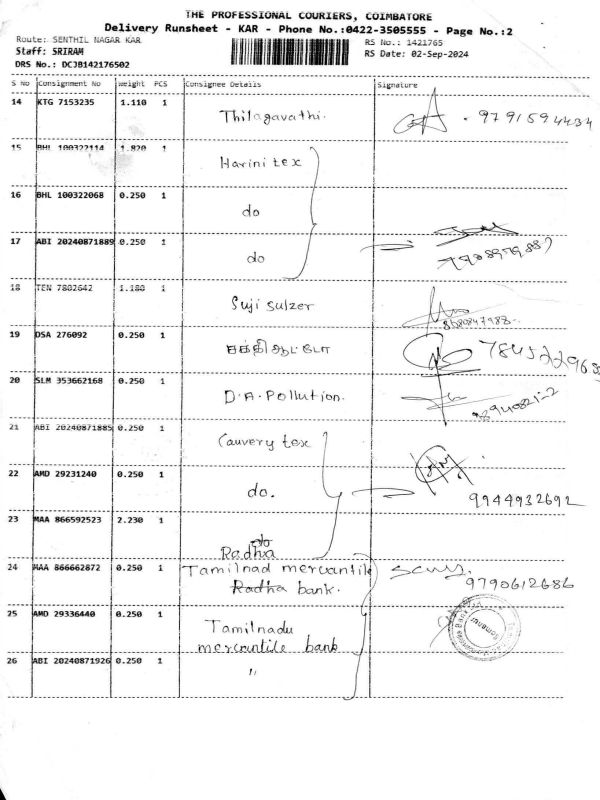 THE PROFESSIONAL COURIERS, COIMBATORE
Delivery Runsheet - KAR - Phone No.:0422-3505555 - Page No.:2
Route: SENTHIL NAGAR KAR
RS No.: 1421765
Staff: SRIRAM
RS Date: 02-Sep-2024
DRS No.: DCJB142176502
S No Consignment No Weight PCS Consignee Details Signature
14 KTG 7153235 1.110 1 Thilagavathi. 9791594434
15 BHL 100322114 1.820 1 Harini tex
16 BHL 100322068 0.250 1 do
17 ABI 20240871889 0.250 1 do
18 TEN 7802642 1.180 1 Suji Sulzer
19 DSA 276092 0.250 1 சக்திஆட்டோ
20 SLM 353662168 0.250 1 D.A. Pollution.
21 ABI 20240871885 0.250 1 Cauvery tex
22 AMD 29231240 0.250 1 do. 9944932692
23 MAA 866592523 2.230 1 do
Radha
24 MAA 866662872 0.250 1 Tamilnad mercantile
Radha bank. 9790612686
25 AMD 29336440 0.250 1 Tamilnadu
mercantile bank
Somanur
26 ABI 20240871926 0.250 1 "